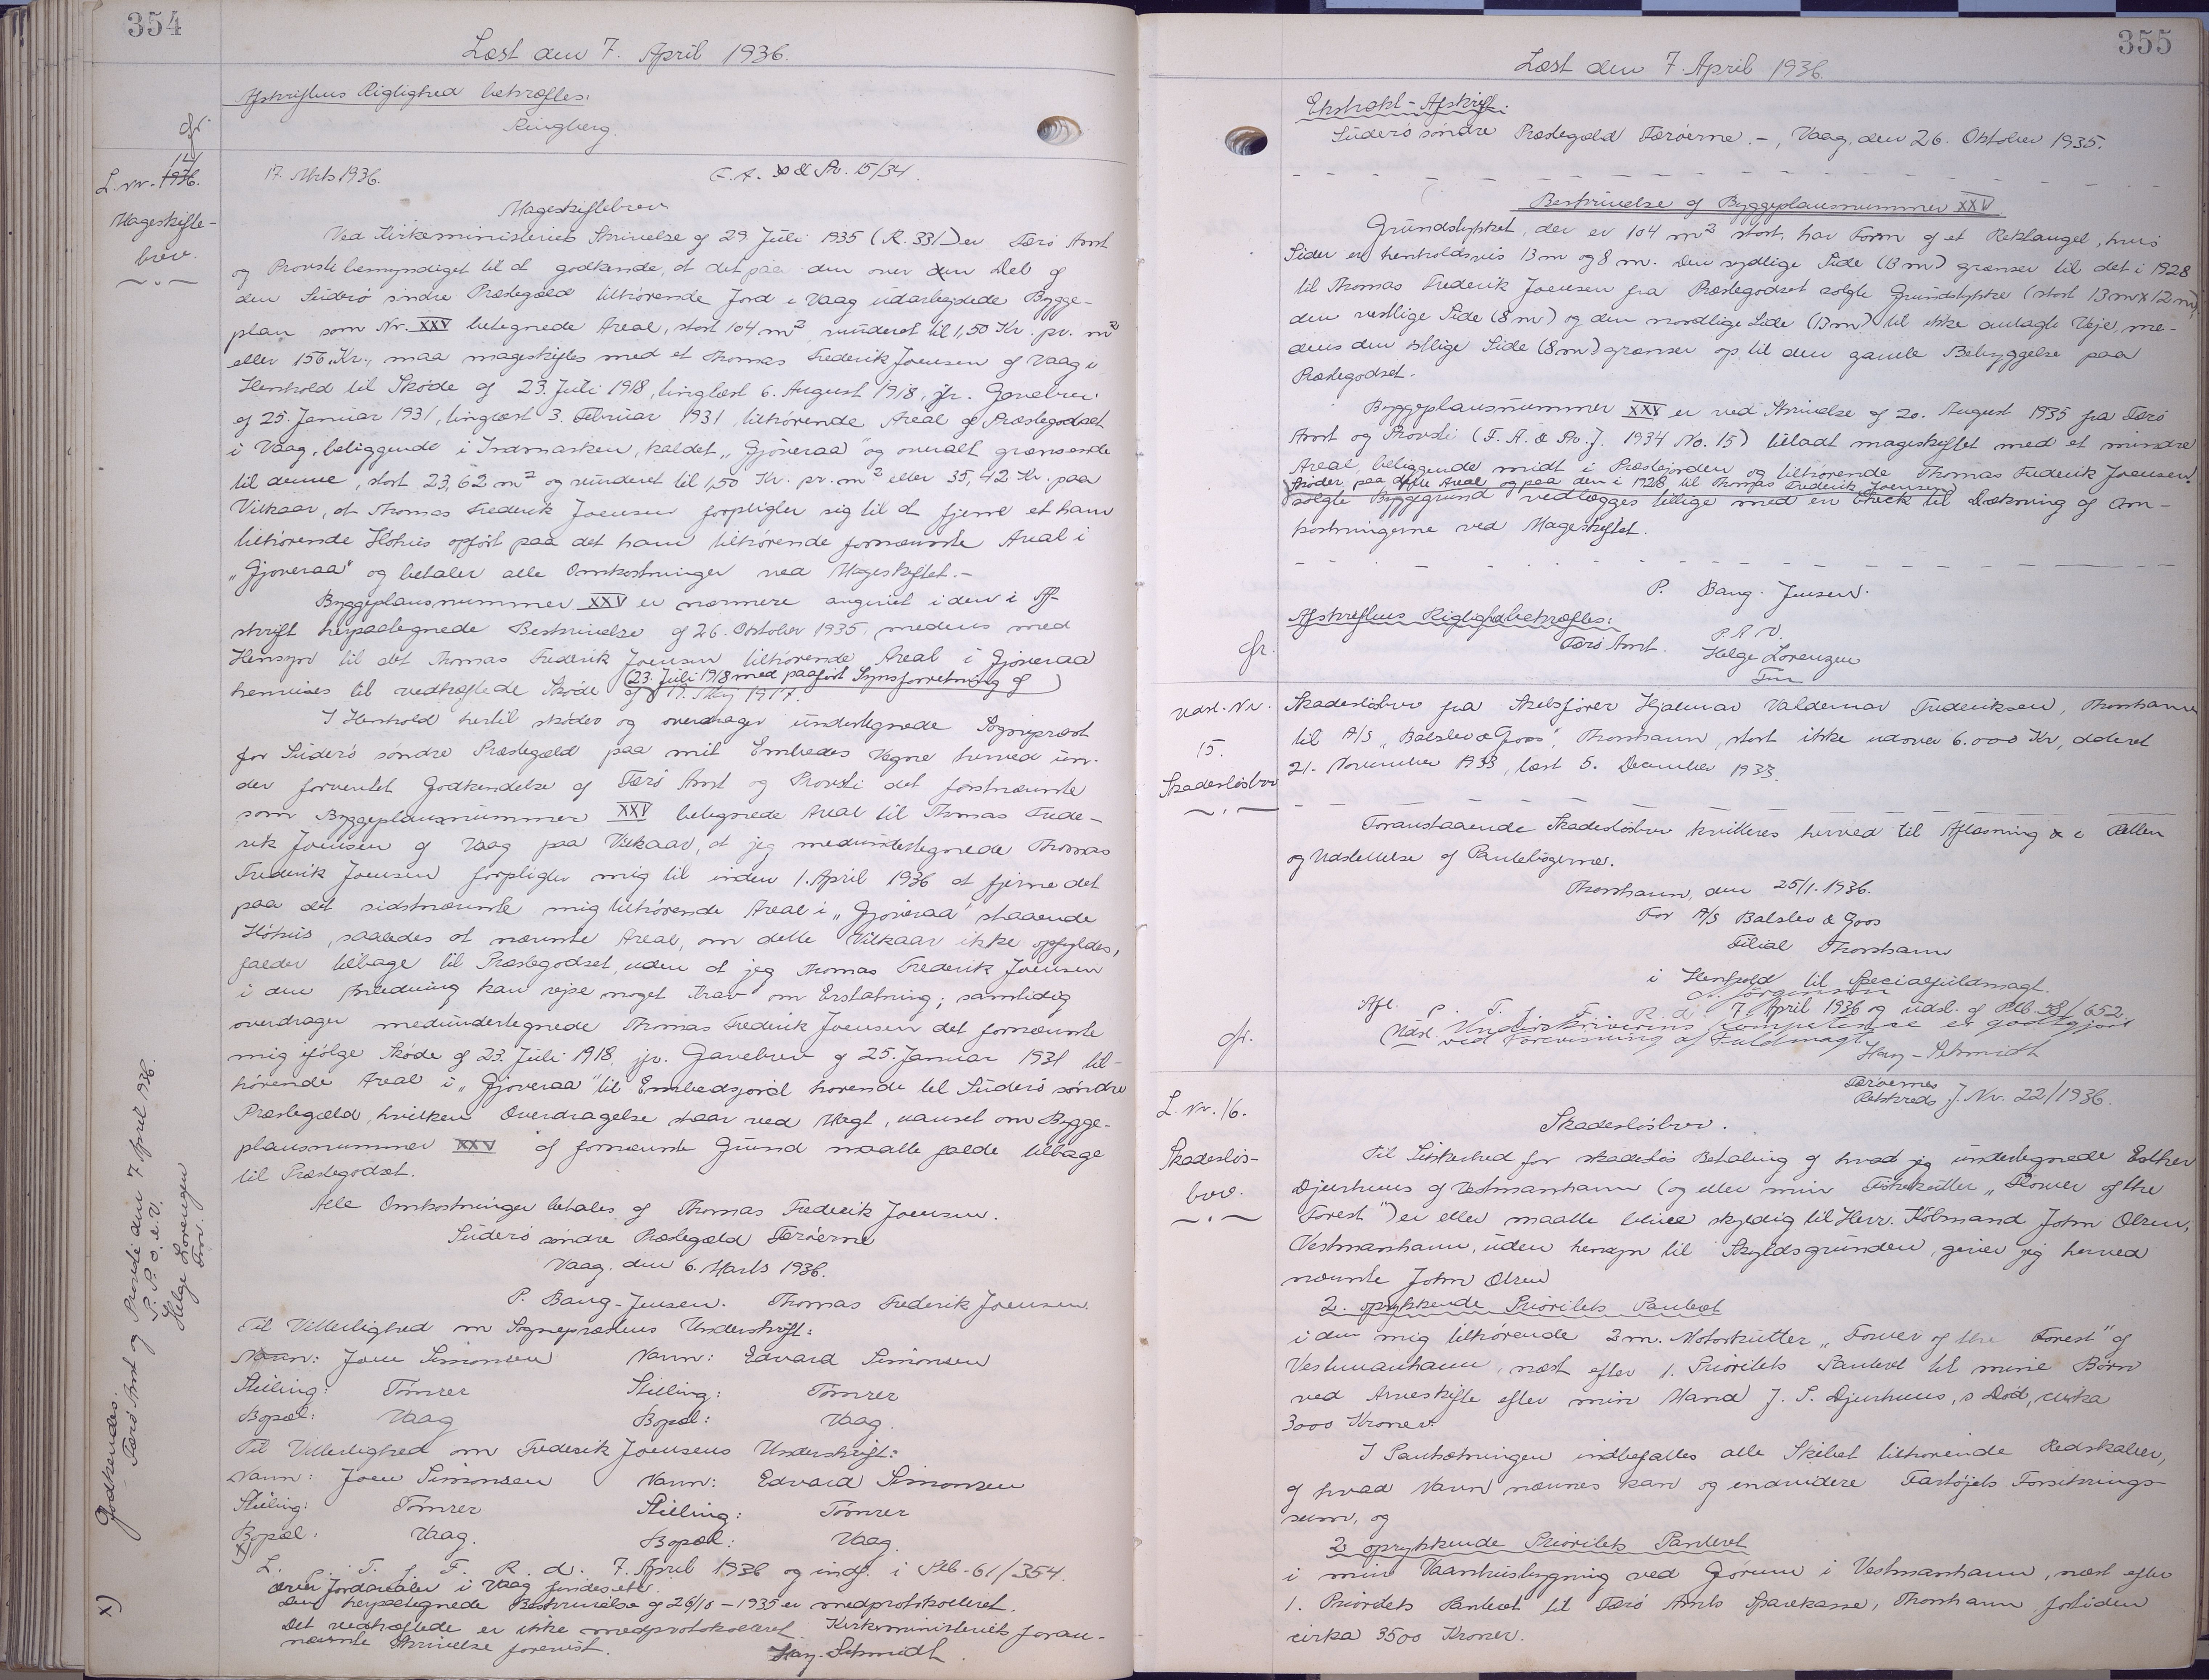 354
Læst den 7. April 1936.
Afskriftens Rigtighed bekræftes:
Ringberg.
Gr.
L. nr. 14/1936.
Mageskifte-
brev.
17. Mrts 1936.
F. A. & Pr. 15/34
Mageskiftebrev
Ved Kirkeministeriets Skrivelse af 29. Juli 1935 (R. 331) er Færø Amt
og Provsti bemyndiget til at godkende, at det paa den over den Del af
den Suderø søndre Præstegæld tilhørende Jord i Vaag udarbejdede Bygge-
plan som Nr. XXV betegnede Areal, stort 104 m² vurderet til 1,50 Kr. pr. m²
eller 156 Kr., maa mageskiftes med et Thomas Frederik Joensen af Vaag i
Henhold til Skøde af 23. Juli 1918, tinglæst 6. August 1918, jfr. Gavebrev
af 25. Januar 1931, tinglæst 3. Februar 1931, tilhørende Areal af Præstegodset
i Vaag, beliggende i Indmarken, kaldet "Gjøveraa" og overalt grænsende
til denne, stort 23,62 m² og vurderet til 1,50 Kr. pr. m² eller 35,42 Kr. paa
Vilkaar, at Thomas Frederik Joensen forpligter sig til at fjerne et ham
tilhørende Høhus opført paa det ham tilhørende fornævnte Areal i
"Gjøveraa" og betaler alle Omkostninger ved Mageskiftet.-
Byggeplansnummer XXV er nærmere angivet i den i Af-
skrift herpaategnede Beskrivelse af 26. Oktober 1935, medens med
Hensyn til det Thomas Frederik Joensen tilhørende Areal i Gjøveraa
henvises til vedhæftede Skøde af (23. Juli 1918 med paaført Synsforretning af) 19. Maj 1917.
I Henhold hertil skøder og overdrager undertegnede Sognepræst
for Suderø søndre Præstegæld paa mit Embedes Vegne herved un-
der forventet Godkendelse af Færø Amt og Provsti det førstnævnte
som Byggeplansnummer XXV betegnede Areal til Thomas Frede-
rik Joensen af Vaag paa Vilkaar, at jeg medundertegnede Thomas
Frederik Joensen forpligter mig til inden 1. April 1936 at fjerne det
paa det sidstnævnte mig tilhørende Areal i "Gjøveraa" staaende
Høhus, saaledes at nævnte Areal, om dette Vilkaar ikke opfyldes,
falder tilbage til Præstegodset, uden at jeg Thomas Frederik Joensen
i den Anledning kan rejse noget Krav om Erstatning; samtidig
overdrager medundertegnede Thomas Frederik Joensen det fornævnte
mig ifølge Skøde af 23. Juli 1918 jfr. Gavebrev af 25. Januar 1931 til-
hørende Areal i "Gjøveraa" til Embedsjord hørende til Suderø søndre
Præstegæld, hvilken Overdragelse staar ved Magt, uanset om Bygge-
plansnummer XXV af fornævnte Grund maatte falde tilbage
til Præstegodset.
Alle Omkostninger betales af Thomas Frederik Joensen.
Suderø søndre Præstegæld Færøerne
Vaag, den 6. Marts 1936.
P. Bang-Jensen. Thomas Frederik Joensen.
Til Vitterlighed om Sognepræstens Underskrift:
Navn: Joen Simonsen Navn: Edvard Simonsen
Stilling: Tømrer Stilling: Tømrer
Bopæl: Vaag Bopæl: Vaag.
Til Vitterlighed om Frederik Joensens Underskrift:
Navn: Joen Simonsen Navn: Edvard Simonsen
Stilling: Tømrer Stilling: Tømrer
Bopæl: Vaag. Bopæl: Vaag.
x)
L. p. T. f. F. R. d. 7. April 1936 og indf. i Ptb-61/354.
over Jordarealer i Vaag findes
Den herpaategnede Beskrivelse af 26/10-1935 er medprotokolleret.
Det vedhæftede er ikke medprotokolleret. Kirkeministeriets foran-
nævnte Skrivelse forevist.
Hay-Schmidt
x) Godkendes.
Færø Amt og Provsti den 7 April 1936.
P. P. o. e. V.
Helge Lorenzen
Fm.
355
Læst den 7. April 1936.
Ekstrakt-Afskrift:
Suderø søndre Præstegæld Færøerne.-, Vaag, den 26. Oktober 1935.
Beskrivelse af Byggeplansnummer XXV
Grundstykket, der er 104 m² stort, har Form af et Rektangel, hvis
Sider er henholdsvis 13 m og 8 m. Den sydlige Side (13 m) grænser til det i 1928
til Thomas Frederik Joensen fra Præstegodset solgte Grundstykke (stort 13 m x 12 m)
den vestlige Side (8 m) og den nordlige Side (13 m) til ikke anlagte Veje, me-
dens den østlige Side (8 m) grænser op til den gamle Bebyggelse paa
Præstegodset.
Byggeplansnummer XXV er ved Skrivelse af 20. August 1935 fra Færø
Amt og Provsti (F. A. & Pr. J. 1934 No. 15) tilladt mageskiftet med et mindre
Areal, beliggende midt i Præstejorden og tilhørende Thomas Frederik Joensen.
Skøder paa dette Areal og paa den i 1928 til Thomas Frederik Joensen
solgte Byggegrund vedlægges tillige med en Check til Dækning af Om-
kostningerne ved Mageskiftet.
P. Bang-Jensen.
Afskriftens Rigtighed bekræftes:
Færø Amt. P. A. V.
Helge Lorenzen
Fm
Gr.
Udsl. Nr.
15.
Skadesløsbrev
Skadesløsbrev fra Skibsfører Hjalmar Valdemar Frederiksen, Thorshavn
til A/S "Balslev & Goos", Thorshavn, stort ikke udover 6.000 Kr, dateret
21. November 1933, læst 5. December 1933.
Foranstaaende Skadesløsbrev kvitteres herved til Aflæsning i Retten
og Udslettelse af Pantebøgerne.
Thorshavn, den 25/1-1936.
For A/S Balslev & Goos
Filial Thorshavn
i Henhold til Specialfuldmagt.
Jörgensen
Afl. p. T. f. F. R. d. 7 April 1936 og udsl. af Ptb. 58/652.
(Udsl. Underskriverens Kompetence er godtgjort
ved Forevisning af Fuldmagt.
Hay-Schmidt
Gr.
L. Nr. 16.
Skadesløs-
brev.
Færøernes
Retskreds J. Nr. 22/1936.
Skadesløsbrev.
Til Sikkerhed for skadesløs Betaling af hvad jeg undertegnede Esther
Djurhuus af Vestmanhavn (og eller min Fiskekutter "Flower of the
Forest") er eller maatte blive skyldig til Herr. Købmand John Olsen,
Vestmanhavn, uden hensyn til Skyldsgrunden, giver jeg herved
nævnte John Olsen
2. oprykkende Prioritets Panteret
i den mig tilhørende 2 m. Motorkutter "Fower of the Forest" af
Vestmanhavn, næst efter 1. Prioritets Panteret til mine Børn
ved Arveskifte efter min Mand J. S. Djurhuus, s Død, cirka
3000 Kroner.
I Pantsætningen indbefattes alle Skibet tilhørende Redskaber,
af hvad Navn nævnes kan og endvidere Fartøjets Forsikrings-
sum, og
2 oprykkende Prioritets Panteret
i min Vaanhusbygning ved Gørum i Vestmanhavn, næst efter
1. Prioritets Panteret til Færø Amts Sparekasse, Thorshavn fortiden
cirka 3500 Kroner.